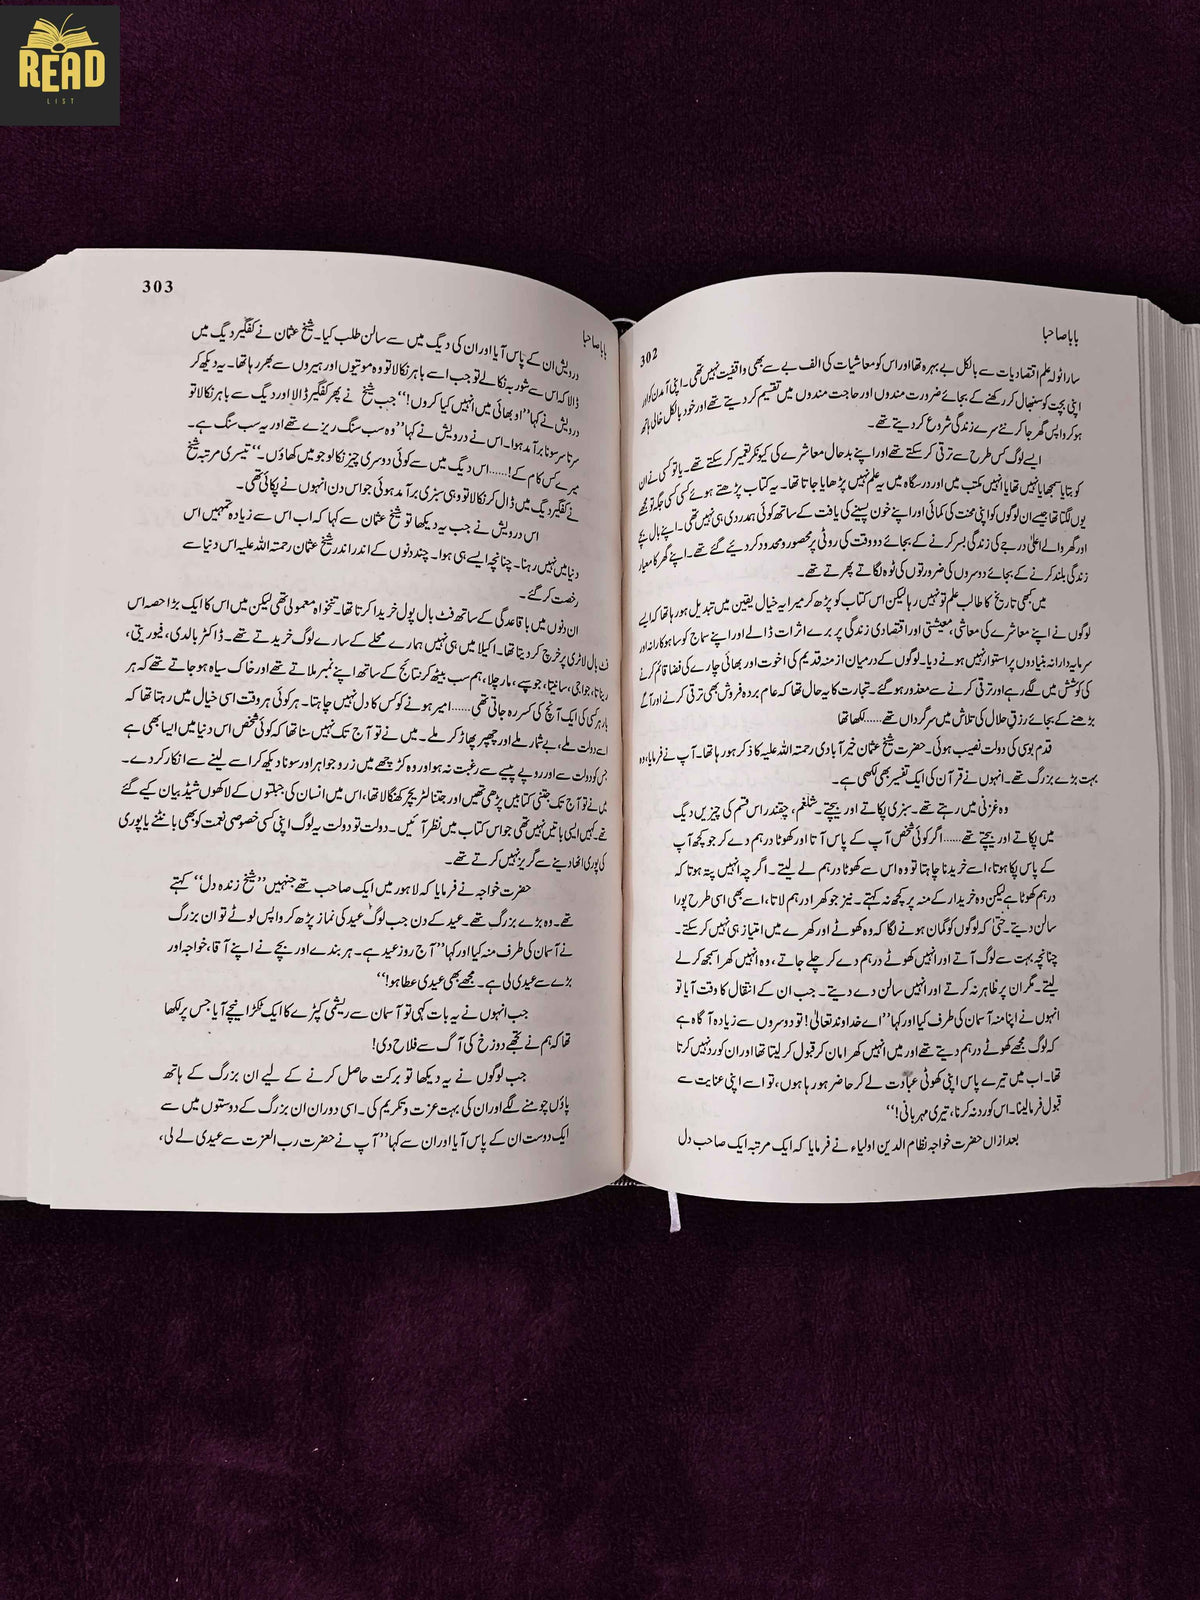 READ
LIST
باباصاحبا
302
سارا ٹولہ علم اقتصادیات سے بالکل بے بہرہ تھا اور اس کو معاشیات کی الف بے سے بھی واقفیت نہیں تھی۔ اپنی آمدن کو اور
اپنی بچت کو سنبھال کر رکھنے کے بجائے ضرورت مندوں اور حاجت مندوں میں تقسیم کر دیتے تھے اور خود بالکل خالی ہاتھ
ہو کر واپس گھر جا کر نئے سرے زندگی شروع کر دیتے تھے۔
ایسے لوگ کس طرح سے ترقی کر سکتے تھے اور اپنے بدحال معاشرے کی کیونکر تعمیر کر سکتے تھے۔ یا تو کسی نے ان
کو بتایا سمجھایا نہیں تھا یا انہیں مکتب میں اور درسگاہ میں یہ علم نہیں پڑھایا جاتا تھا۔ یہ کتاب پڑھتے ہوئے کسی کسی جگہ تو مجھے
یوں لگتا تھا جیسے ان لوگوں کو اپنی محنت کی کمائی اور اپنے خون پسینے کی یافت کے ساتھ کوئی ہمدردی ہی نہیں تھی۔ اپنے بال بچے
اور گھر والے اعلیٰ درجے کی زندگی بسر کرنے کے بجائے دو وقت کی روٹی پر محصور و محدود کر دیئے گئے تھے۔ اپنے گھر کا معیار
زندگی بلند کرنے کے بجائے دوسروں کی ضرورتوں کی ٹوہ لگاتے پھرتے تھے۔
میں کبھی تاریخ کا طالب علم تو نہیں رہا لیکن اس کتاب کو پڑھ کر میرا یہ خیال یقین میں تبدیل ہو رہا تھا کہ ایسے
لوگوں نے اپنے معاشرے کی معاشی، معیشتی اور اقتصادی زندگی پر برے اثرات ڈالے اور اپنے سماج کو ساہوکارانہ اور
سرمایہ دارانہ بنیادوں پر استوار نہیں ہونے دیا۔ لوگوں کے درمیان ازمنہ قدیم کی اخوت اور بھائی چارے کی فضا قائم کرنے
کی کوشش میں لگے رہے اور ترقی کرنے سے معذور ہو گئے۔ تجارت کا یہ حال تھا کہ عام بردہ فروش بھی ترقی کرنے اور آگے
بڑھنے کے بجائے رزقِ حلال کی تلاش میں سرگرداں تھے...... لکھا تھا
قدم بوسی کی دولت نصیب ہوئی۔ حضرت شیخ عثمان خیر آبادی رحمتہ اللہ علیہ کا ذکر ہو رہا تھا۔ آپ نے فرمایا، وہ
بہت بڑے بزرگ تھے۔ انہوں نے قرآن کی ایک تفسیر بھی لکھی ہے۔
وہ غزنی میں رہتے تھے۔ سبزی پکاتے اور بیچتے۔ شلغم، چقندر اس قسم کی چیزیں دیگ
میں پکاتے اور بیچتے تھے...... اگر کوئی شخص آپ کے پاس آتا اور کھوٹا درہم دے کر جو کچھ آپ
کے پاس پکا ہوتا، اسے خریدنا چاہتا تو وہ اس سے کھوٹا درہم لے لیتے۔ اگرچہ انہیں پتہ ہوتا کہ
درہم کھوٹا ہے لیکن وہ خریدار کے منہ پر کچھ نہ کہتے۔ نیز جو کھرا درہم لاتا، اسے بھی اسی طرح پورا
سالن دیتے۔ حتیٰ کہ لوگوں کو گمان ہونے لگا کہ وہ کھوٹے اور کھرے میں امتیاز ہی نہیں کر سکتے۔
چنانچہ بہت سے لوگ آتے اور انہیں کھوٹے درہم دے کر چلے جاتے، وہ انہیں کھرا سمجھ کر لے
لیتے۔ مگر ان پر ظاہر نہ کرتے اور انہیں سالن دے دیتے۔ جب ان کے انتقال کا وقت آیا تو
انہوں نے اپنا منہ آسمان کی طرف کیا اور کہا ’’اے خداوند تعالیٰ! تو دوسروں سے زیادہ آگاہ ہے
کہ لوگ مجھے کھوٹے درہم دیتے تھے اور میں انہیں کھرا مان کر قبول کر لیتا تھا اور ان کو رد نہیں کرتا
تھا۔ اب میں تیرے پاس اپنی کھوٹی عبادت لے کر حاضر ہو رہا ہوں، تو اسے اپنی عنایت سے
قبول فرما لینا۔ اس کو رد نہ کرنا، تیری مہربانی!‘‘
بعد ازاں حضرت خواجہ نظام الدین اولیاء نے فرمایا کہ ایک مرتبہ ایک صاحب دل
باباصاحبا
303
درویش ان کے پاس آیا اور ان کی دیگ میں سے سالن طلب کیا۔ شیخ عثمان نے کفگیر دیگ میں
ڈالا کہ اس سے شوربہ نکالے تو جب اسے باہر نکالا تو وہ موتیوں اور ہیروں سے بھرا ہوا تھا۔ یہ دیکھ کر
درویش نے کہا ’’او بھائی میں انہیں کیا کروں!‘‘ جب شیخ نے پھر کفگیر ڈالا اور دیگ سے باہر نکالا تو
سرتا سر سونا برآمد ہوا۔ اس نے درویش نے کہا ’’وہ سب سنگ ریزے تھے اور یہ سب سنگ ہے۔
میرے کس کام کے!...... اس دیگ میں سے کوئی دوسری چیز نکالو جو میں کھاؤں۔‘‘ تیسری مرتبہ شیخ
نے کفگیر دیگ میں ڈال کر نکالا تو وہی سبزی برآمد ہوئی جو اس دن انہوں نے پکائی تھی۔
اس درویش نے جب یہ دیکھا تو شیخ عثمان سے کہا کہ اب اس سے زیادہ تمہیں اس
دنیا میں نہیں رہنا۔ چنانچہ ایسے ہی ہوا۔ چند دنوں کے اندر اندر شیخ عثمان رحمتہ اللہ علیہ اس دنیا سے
رخصت کر گئے۔
ان دنوں میں باقاعدگی کے ساتھ فٹ بال پول خریدا کرتا تھا۔ تنخواہ معمولی تھی لیکن میں اس کا ایک بڑا حصہ اس
فٹ بال لاٹری پر خرچ کر دیتا تھا۔ اکیلا میں ہی نہیں ہمارے محلے کے سارے لوگ خریدتے تھے۔ ڈاکٹر بالدی، فیوریتی،
ریناتا، جواجی، سانیتا، جوسپے، مارچلا، ہم سب بیٹھ کر نتائج کے ساتھ اپنے نمبر ملاتے تھے اور خاک سیاہ ہو جاتے تھے کہ ہر
بار ہر کسی کی ایک آنچ کی کسر رہ جاتی تھی...... امیر ہونے کو کس کا دل نہیں چاہتا۔ ہر کوئی ہر وقت اسی خیال میں رہتا تھا کہ
اسے دولت ملے، بے شمار ملے اور چھپر پھاڑ کر ملے۔ میں نے تو آج تک نہیں سنا تھا کہ کوئی شخص اس دنیا میں ایسا بھی ہے
جس کو دولت سے اور روپے پیسے سے رغبت نہ ہو اور وہ کڑچھے میں زر و جواہر اور سونا دیکھ کر اسے لینے سے انکار کر دے۔
میں نے تو آج تک جتنی کتابیں پڑھی تھیں اور جتنا لٹریچر کھنگالا تھا، اس میں انسان کی جبلتوں کے لاکھوں شیڈ بیان کیے گئے
تھے۔ کہیں ایسی باتیں نہیں تھی جو اس کتاب میں نظر آئیں۔ دولت تو دولت یہ لوگ اپنی کسی خصوصی نعمت کو بھی بانٹنے یا پوری
کی پوری اٹھا دینے سے گریز نہیں کرتے تھے۔
حضرت خواجہ نے فرمایا کہ لاہور میں ایک صاحب تھے جنہیں ’’شیخ زندہ دل‘‘ کہتے
تھے۔ وہ بڑے بزرگ تھے۔ عید کے دن جب لوگ عید کی نماز پڑھ کر واپس لوٹے تو ان بزرگ
نے آسمان کی طرف منہ کیا اور کہا ’’آج روز عید ہے۔ ہر بندے اور بچے نے اپنے آقا، خواجہ اور
بڑے سے عیدی لی ہے۔ مجھے بھی عیدی عطا ہو!‘‘
جب انہوں نے یہ بات کہی تو آسمان سے ریشمی کپڑے کا ایک ٹکڑا نیچے آیا جس پر لکھا
تھا کہ ہم نے تجھے دوزخ کی آگ سے فلاح دی!
جب لوگوں نے یہ دیکھا تو برکت حاصل کرنے کے لیے ان بزرگ کے ہاتھ
پاؤں چومنے لگے اور ان کی بہت عزت و تکریم کی۔ اسی دوران ان بزرگ کے دوستوں میں سے
ایک دوست ان کے پاس آیا اور ان سے کہا ’’آپ نے حضرت رب العزت سے عیدی لے لی،